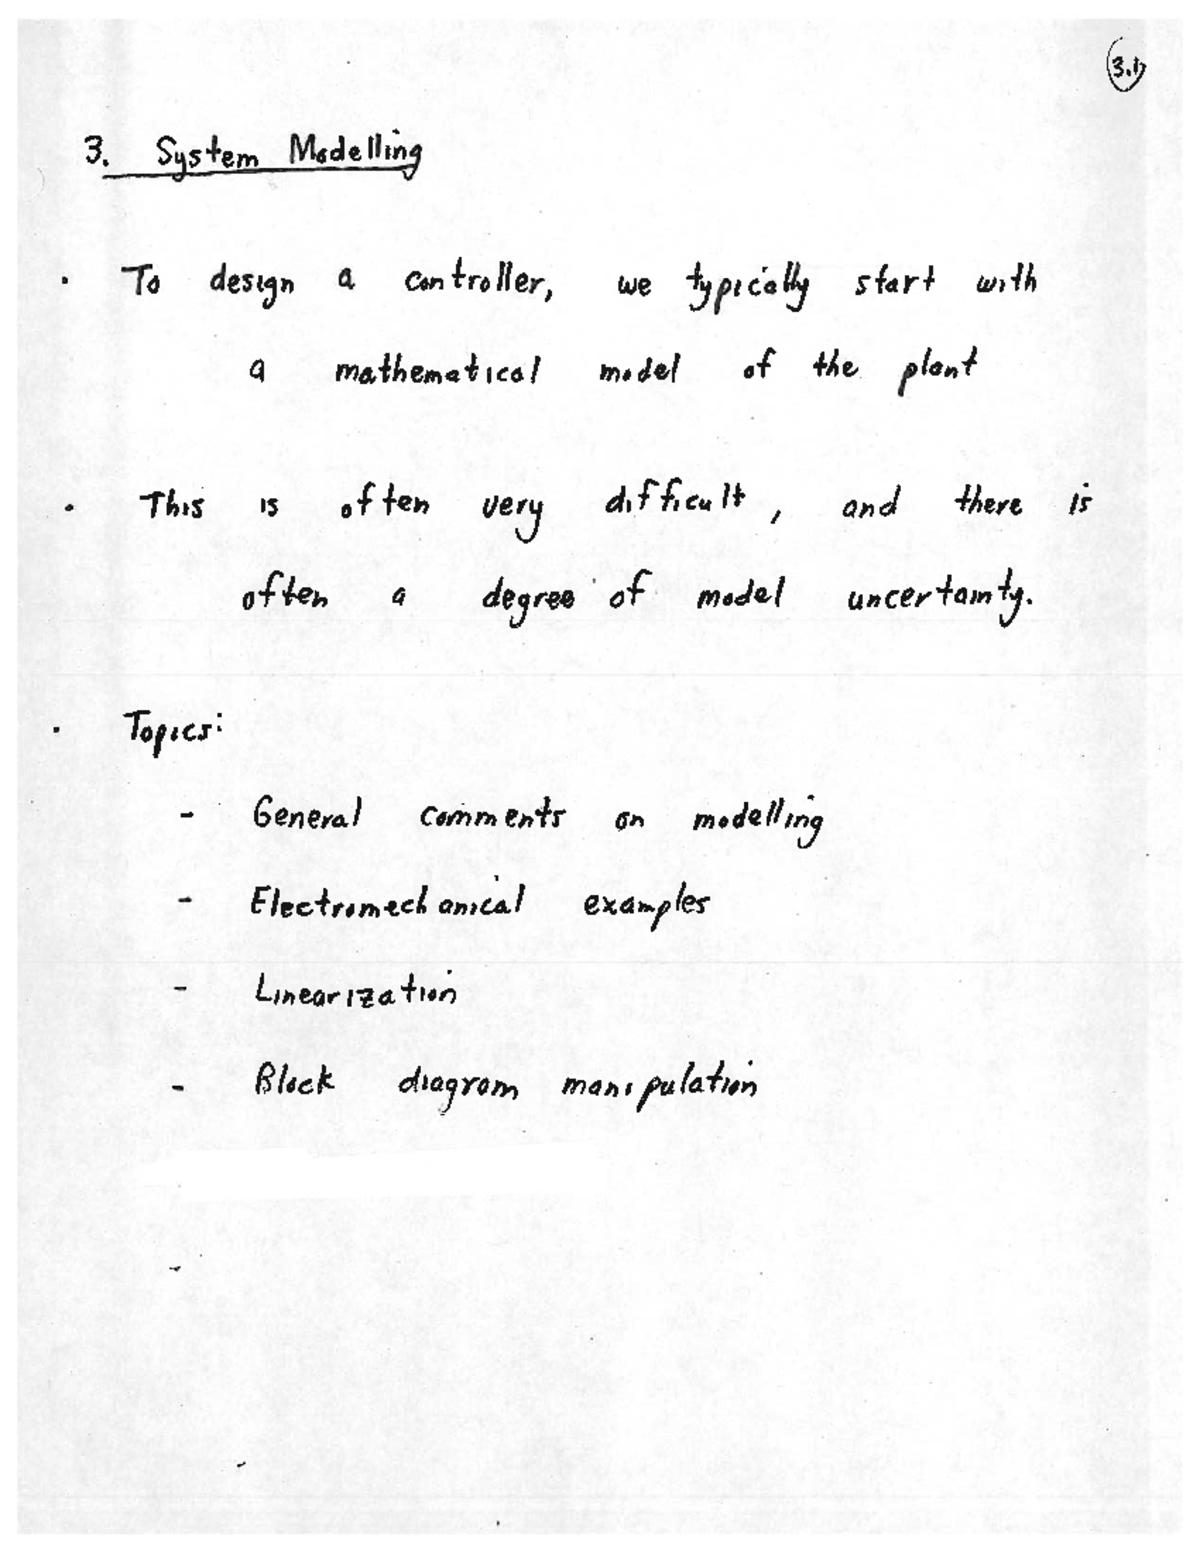 3.1
3. System Modelling
• To design a controller, we typically start with
a mathematical model of the plant
• This is often very difficult, and there is
often a degree of model uncertainty.
• Topics:
- General comments on modelling
- Electromechanical examples
- Linearization
- Block diagram manipulation